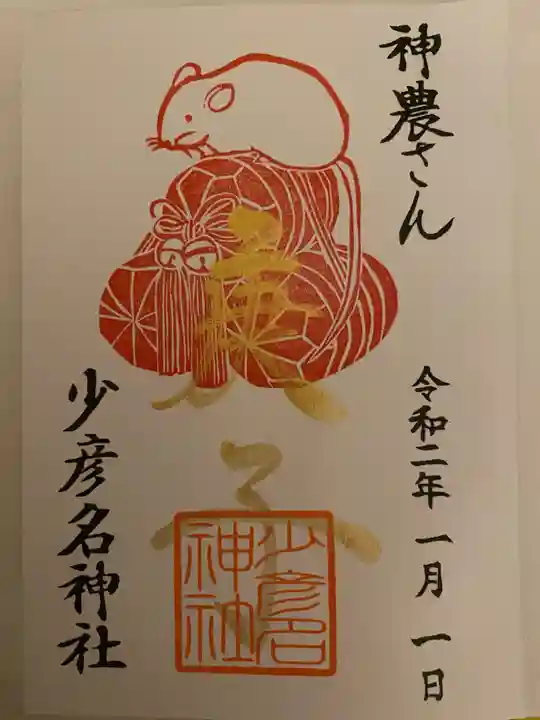 神農さん
令和二年 一月 一日
庚子
少彦名神社
少彦名
神社